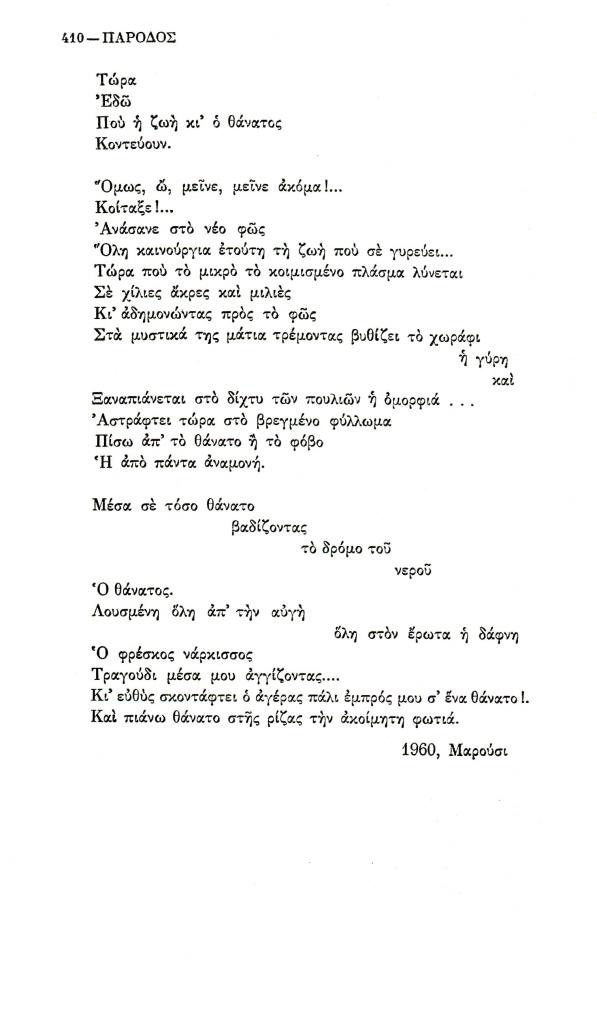 410 — ΠΑΡΟΔΟΣ
Τώρα
Ἐδῶ
Ποὺ ἡ ζωὴ κι' ὁ θάνατος
Κοντεύουν.
Ὅμως, ὤ, μεῖνε, μεῖνε ἀκόμα!...
Κοίταξε!...
Ἀνάσανε στὸ νέο φῶς
Ὅλη καινούργια ἐτούτη τὴ ζωὴ ποὺ σὲ γυρεύει...
Τώρα ποὺ τὸ μικρὸ τὸ κοιμισμένο πλάσμα λύνεται
Σὲ χίλιες ἄκρες καὶ μιλιὲς
Κι' ἀδημονώντας πρὸς τὸ φῶς
Στὰ μυστικά της μάτια τρέμοντας βυθίζει τὸ χωράφι
ἡ γύρη
καὶ
Ξαναπιάνεται στὸ δίχτυ τῶν πουλιῶν ἡ ὀμορφιά . . .
Ἀστράφτει τώρα στὸ βρεγμένο φύλλωμα
Πίσω ἀπ' τὸ θάνατο ἢ τὸ φόβο
Ἡ ἀπὸ πάντα ἀναμονή.
Μέσα σὲ τόσο θάνατο
βαδίζοντας
τὸ δρόμο τοῦ
νεροῦ
Ὁ θάνατος.
Λουσμένη ὅλη ἀπ' τὴν αὐγὴ
ὅλη στὸν ἔρωτα ἡ δάφνη
Ὁ φρέσκος νάρκισσος
Τραγούδι μέσα μου ἀγγίζοντας....
Κι' εὐθὺς σκοντάφτει ὁ ἀγέρας πάλι ἐμπρός μου σ' ἕνα θάνατο!.
Καὶ πιάνω θάνατο στῆς ρίζας τὴν ἀκοίμητη φωτιά.
1960, Μαρούσι